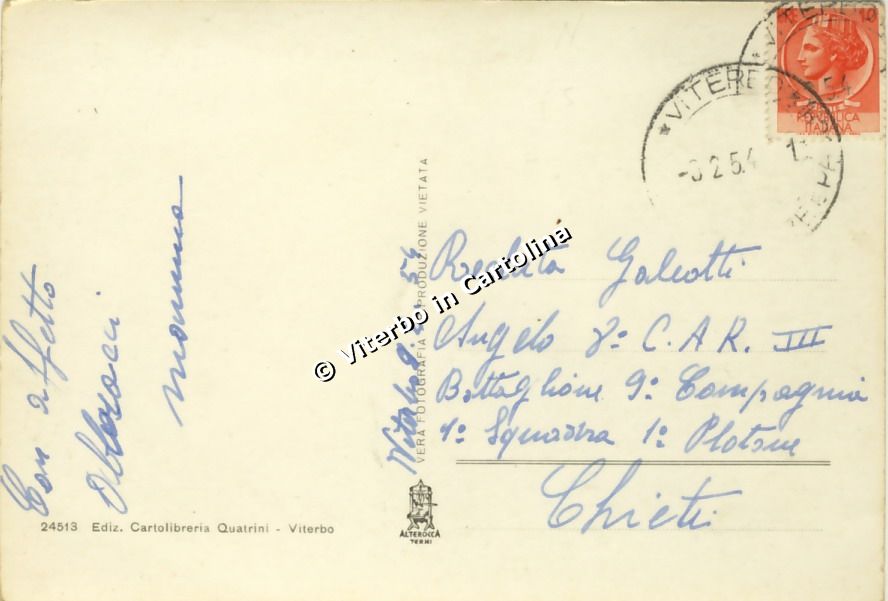 Con affetto
Abbracci
mamma
24513 Ediz. Cartolibreria Quatrini - Viterbo
VERA FOTOGRAFIA RIPRODUZIONE VIETATA
Viterbo 54
© Viterbo in Cartolina
ALTEROCCA
TERNI
* VITERBO
-8 2 54
10
REPUBBLICA
ITALIANA
Recluta Galeotti
Angelo 8° C.A.R. III
Battaglione 9° Compagnia
1° Squadra 1° Plotone
Chieti